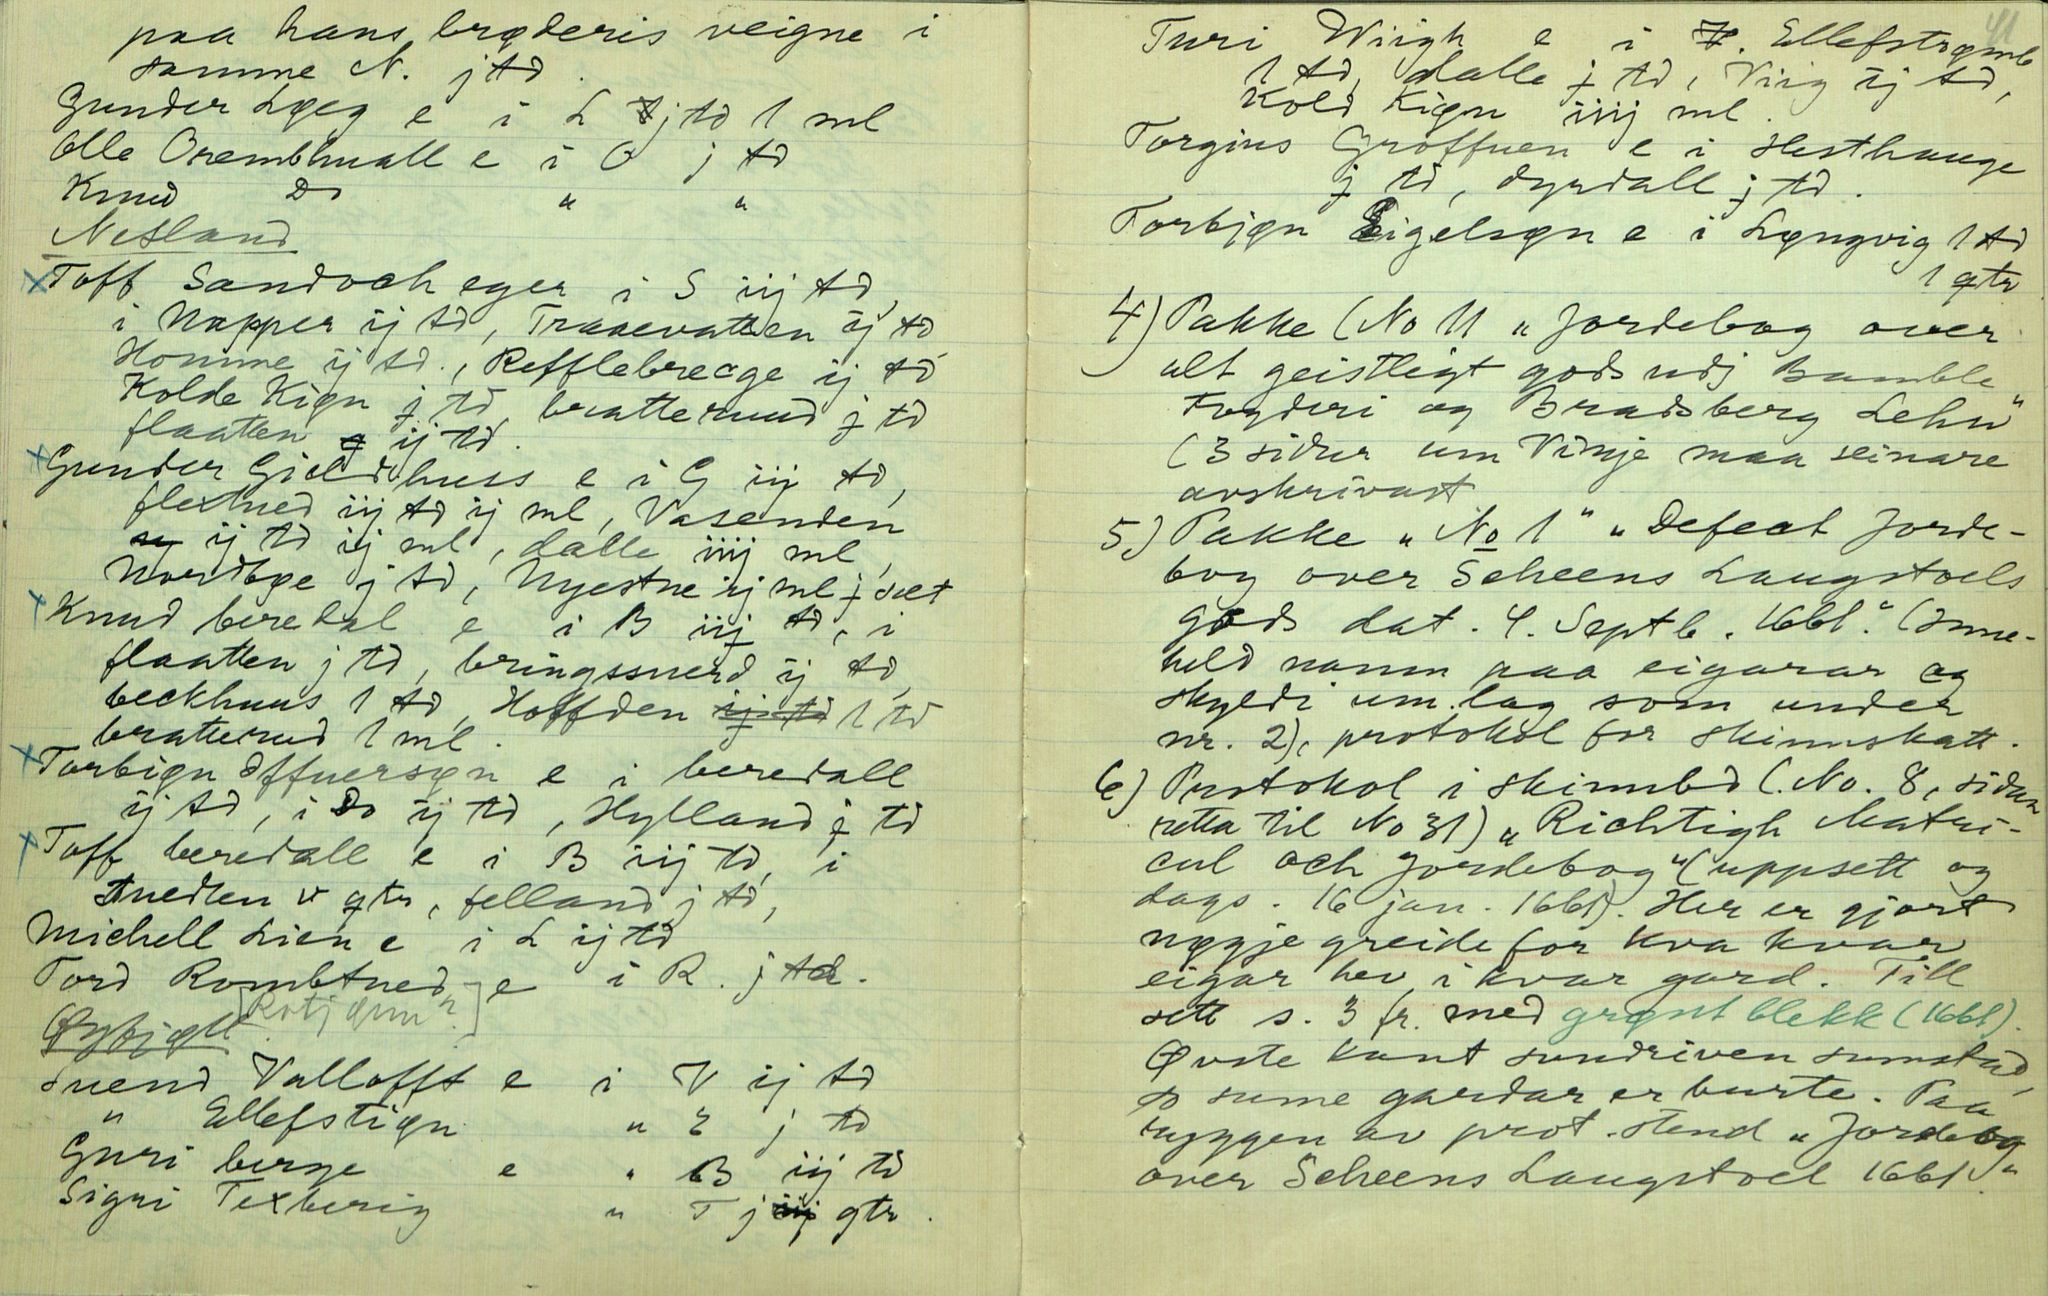 paa hans brøderis veigne i
samme N. j td.
Gunder Løeg e i L j td 1 ml
Olle Orembhuall e i O j td
Knud Do " "
Nesland
x Toff Sandoch eger i S iij td,
i Napper ij td, Traaevatten ij td
Homme ij td., Refflebrecge ij td
Kolde Kign j td, bratterud j td
flaatten ij td.
x Gunder Gieldhuss e i G iij td,
flextued iij td ij ml, Vasenden
ij td ij ml, dalle iiij ml,
Nordbøe j td, Nyestue ij ml j sct
x Knud beredal e i B iij td, i
flaatten j td, bringssuerd ij td,
beckhuus 1 td, Hoffden ij td 1 td
bratterud 1 ml.
x Torbiøn Offuersøn e i beredall
ij td, i Do ij td, Hylland j td
x Toff beredall e i B iij td, i
tuedten v qtr, felland j td,
Michell Lien e i L ij td
Tord Rombtued e i R. j td.
[Rotjønn?]
Øybiøtt
Suend Vallofft e i V ij td
" Ellefstiøn " E j td
Guri berge e " B iij td
Sigri Texberig " T j iij qtr.
41
Turi Wiigh e i V. Ellefstrømb
1 td, dalle j td, Viig ij td,
Kold Kiøn iiij ml.
Torgius Groffuen e i Hesthauge
j td, dyrdall j td.
Torbjøn Eigelsøn e i Løngvig 1 td
1 qtr
4) Pakke (No 11 „Jordebog over
alt geistligt gods udj Bamble
Fogderi og Bradsberg Lehn"
(3 sidur um Vinje maa seinare
avskrivast
5) Pakke „No 1" „Defect Jorde-
bog over Scheens Laugstoels
gods dat. 4. Septb. 1661." (Inne-
held namn paa eigarar og
skyldi um lag som under
nr. 2), protokol for skinnskatt.
6) Protokol i skinnbd (.No. 8, sidan
retta til No 31) „Richtigh Matri-
cul och Jordebog" (uppsett og
dags. 16 jan. 1661). Her er gjort
nøgje greide for kva kvar
eigar hev i kvar gard. Till
sett s. 3 fr. med grønt blekk (1661).
Øvste kant sundriven sumstad,
so sume gardar er burte. Paa
ryggen av prot. stend „Jordebog
over Scheens Laugstoel 1661."